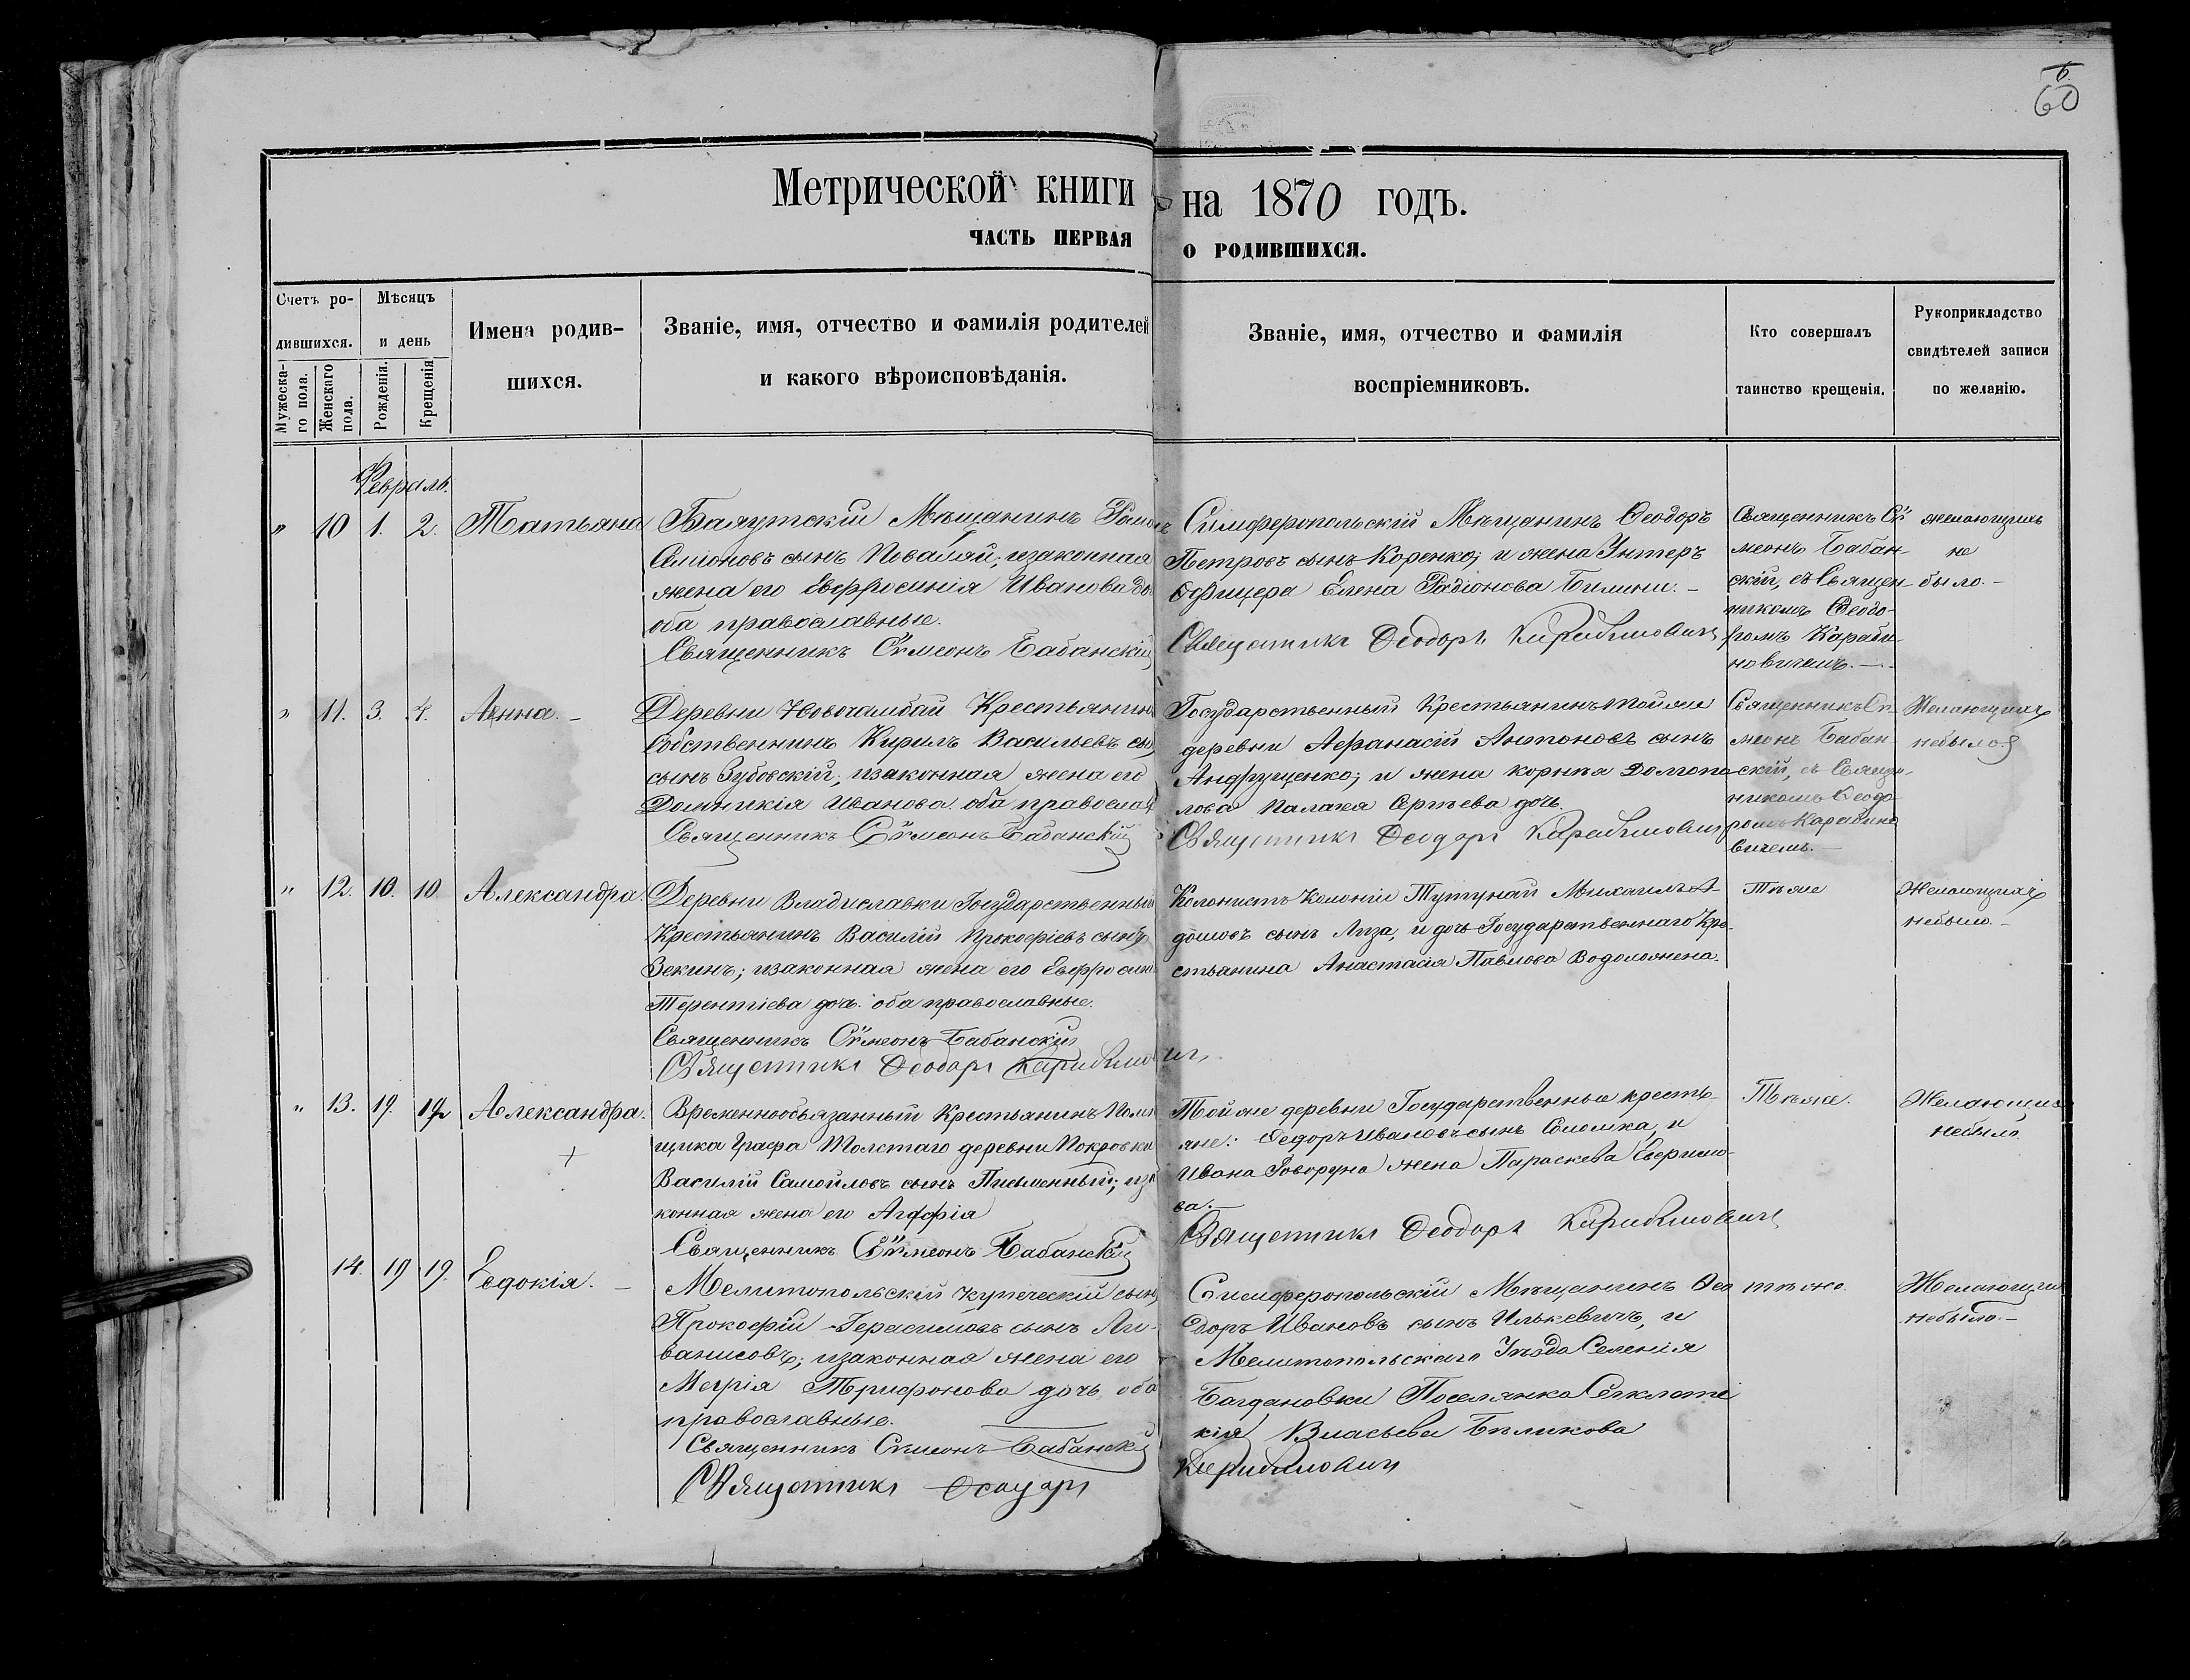 6.
60
Метрической книги на 1870 годъ.
ЧАСТЬ ПЕРВАЯ О РОДИВШИХСЯ.
Счетъ ро-
дившихся.
Мужеска-
го пола.
Женскаго
пола.
Мѣсяцъ
и день
Рожденія.
Крещенія
Имена родив-
шихся.
Званіе, имя, отчество и фамилія родителей
и какого вѣроисповѣданія.
Званіе, имя, отчество и фамилія
воспріемниковъ.
Кто совершалъ
таинство крещенія.
Рукоприкладство
свидѣтелей записи
по желанію.
Февраль.
" 10 1. 2. Татьяна
Мѣщанинъ
Семіоновъ сынъ Поваляй; изаконная
жена его Евфросинія Иванова до
оба православные.
Священникъ Сѵмеонъ Бабанскій
Симферопольскій Мѣщанинъ Ѳеодоръ
Петровъ сынъ Коренко; и жена Унтеръ
Офицера Елена Радіонова
Священникъ Ѳеодоръ Карабиновичъ
Священникъ Сѵ
меонъ Бабан-
скій, съ Священ-
никомъ Ѳеодо-
ромъ Караби-
новичемъ.
желающихъ
не
было.-
" 11. 3. 4. Анна. -
Деревни Крестьянинъ
Собственникъ Кирилъ Васильевъ сы
сынъ Зубовскій; изаконная жена его
Домникія Иванова оба правосла
Священникъ Сѵмеонъ Бабанскій
Государственный Крестьянинъ той же
деревни Афанасій Антоновъ сынъ
Андрущенко; и жена
лова Палагея Сергѣева дочь.
Священникъ Ѳеодоръ Карабиновичъ
Священникъ Сѵ
меонъ Бабан-
скій, съ Свящ-
никомъ Ѳеодо-
ромъ Карабино
вичемъ.-
Желающихъ
небыло
" 12. 10. 10 Александра.
Деревни Владиславки Государственный
Крестьянинъ Василій Прокофіевъ сынъ
Зекинъ; изаконная жена его Евфросин
Терентіева дочь. оба православные.
Священникъ Сѵмеонъ Бабанскій
Священникъ Ѳеодоръ Карабиновичъ
Колонистъ Колоніи Тутунай Михаилъ А-
домовъ сынъ Лиза, и дочь Государственнаго Кре-
стьянина Анастасія Павлова Водоложена.
Тѣже
Желающихъ
небыло.-
" 13. 19. 19 Александра.
+
Временнообязанный Крестьянинъ Помѣ
щика Графа Толстаго деревни Покровки
Василій Самойловъ сынъ Письменный; иза
конная жена его Агафія
Священникъ Сѵмеонъ Бабанскій
Той же деревни Государственные кресть-
яне: Ѳедоръ Ивановъ сынъ Соломка, и
Ивана Говоруна жена Параскева
ва.
Священникъ Ѳеодоръ Карабиновичъ
Тѣже.
Желающих
небыло
14. 19 19. Евдокія. -
Мелитопольскій купеческій сынъ
Прокофій Герасимовъ сынъ Ли-
ванисовъ; изаконная жена его
Марія Трифонова дочь, оба
православные.
Священникъ Сѵмеонъ Бабанскій
Священникъ Ѳеодоръ
Симферопольскій Мѣщанинъ Ѳео
доръ Ивановъ сынъ Илькевичъ, и
Мелитопольскаго Уѣзда Селенія
Богдановки Поселянка
кія Власьева Бѣликова
Карабиновичъ
тѣже.
Желающих
небыло.-